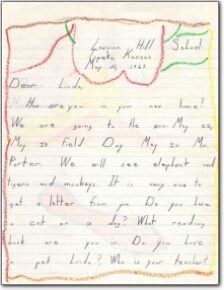 Hill School
Kansas
May 1969
Dear Linda,
How are you in your new home?
We are going to the zoo May 22,
May 23 Field Day May 30 Mr.
Porter. We will see elephant and
tigers and monkeys. It is very nice to
get a letter from you Do you have
a cat or a dog? What reading
book are you in. Do you have
a pet Linda? Who is your teacher?